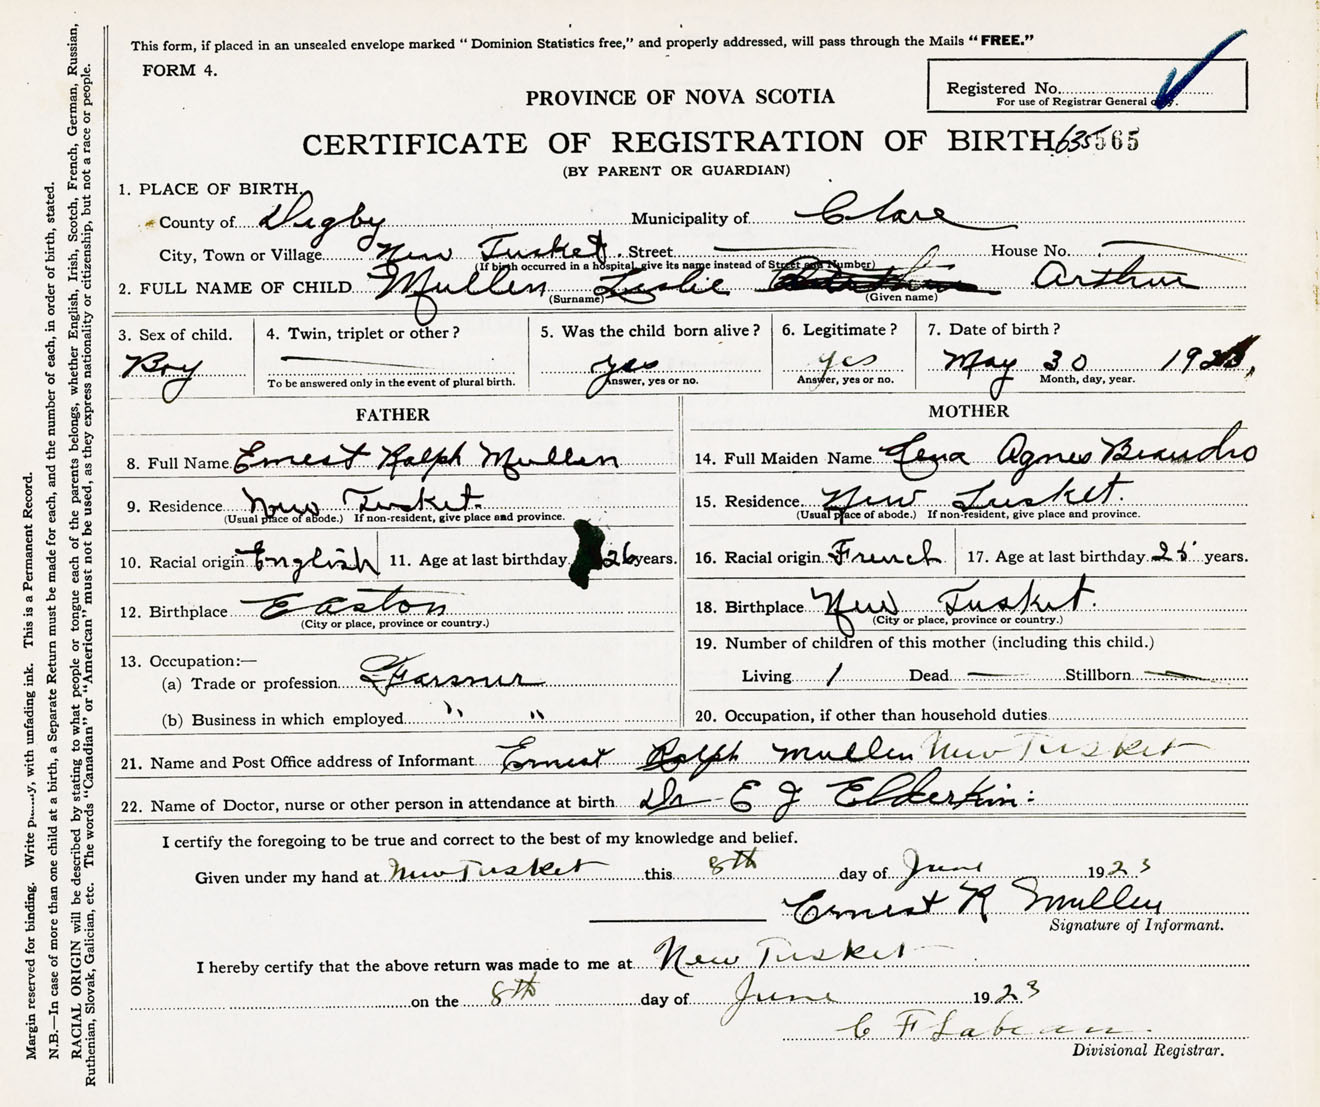 This form, if placed in an unsealed envelope marked “ Dominion Statistics free,” and properly addressed, will pass through the Mails “ FREE.”
FORM 4.
Registered No.
For use of Registrar General
PROVINCE OF NOVA SCOTIA
CERTIFICATE OF REGISTRATION OF BIRTH 635565
(BY PARENT OR GUARDIAN)
1. PLACE OF BIRTH.
County of Digby Municipality of Clare
City, Town or Village New Tusket Street House No.
(If birth occurred in a hospital, give its name instead of Street and Number)
2. FULL NAME OF CHILD Mullen Leslie Arthur
(Surname) (Given name)
3. Sex of child. 4. Twin, triplet or other ? 5. Was the child born alive ? 6. Legitimate ? 7. Date of birth ?
Boy yes yes May 30 1923
To be answered only in the event of plural birth. Answer, yes or no. Answer, yes or no. Month, day, year.
FATHER MOTHER
8. Full Name Ernest Ralph Mullen 14. Full Maiden Name Lena Agnes
9. Residence New Tusket. 15. Residence New Tusket.
(Usual place of abode.) If non-resident, give place and province. (Usual place of abode.) If non-resident, give place and province.
10. Racial origin English 11. Age at last birthday 26 years. 16. Racial origin French 17. Age at last birthday 25 years.
12. Birthplace Easton 18. Birthplace New Tusket.
(City or place, province or country.) (City or place, province or country.)
19. Number of children of this mother (including this child.)
13. Occupation:—
(a) Trade or profession Farmer Living 1 Dead Stillborn
(b) Business in which employed " " 20. Occupation, if other than household duties
21. Name and Post Office address of Informant Ernest Ralph Mullen New Tusket
22. Name of Doctor, nurse or other person in attendance at birth Dr E J Elderkin:
I certify the foregoing to be true and correct to the best of my knowledge and belief.
Given under my hand at New Tusket this 8th day of June 1923
Ernest R Mullen
Signature of Informant.
I hereby certify that the above return was made to me at New Tusket
on the 8th day of June 1923
C F
Divisional Registrar.
Margin reserved for binding. Write with unfading ink. This is a Permanent Record.
N.B.—In case of more than one child at a birth, a Separate Return must be made for each, and the number of each, in order of birth, stated.
RACIAL ORIGIN will be described by stating to what people or tongue each of the parents belongs, whether English, Irish, Scotch, French, German, Russian,
Ruthenian, Slovak, Galician, etc. The words “Canadian” or “American” must not be used, as they express nationality or citizenship, but not a race or people.